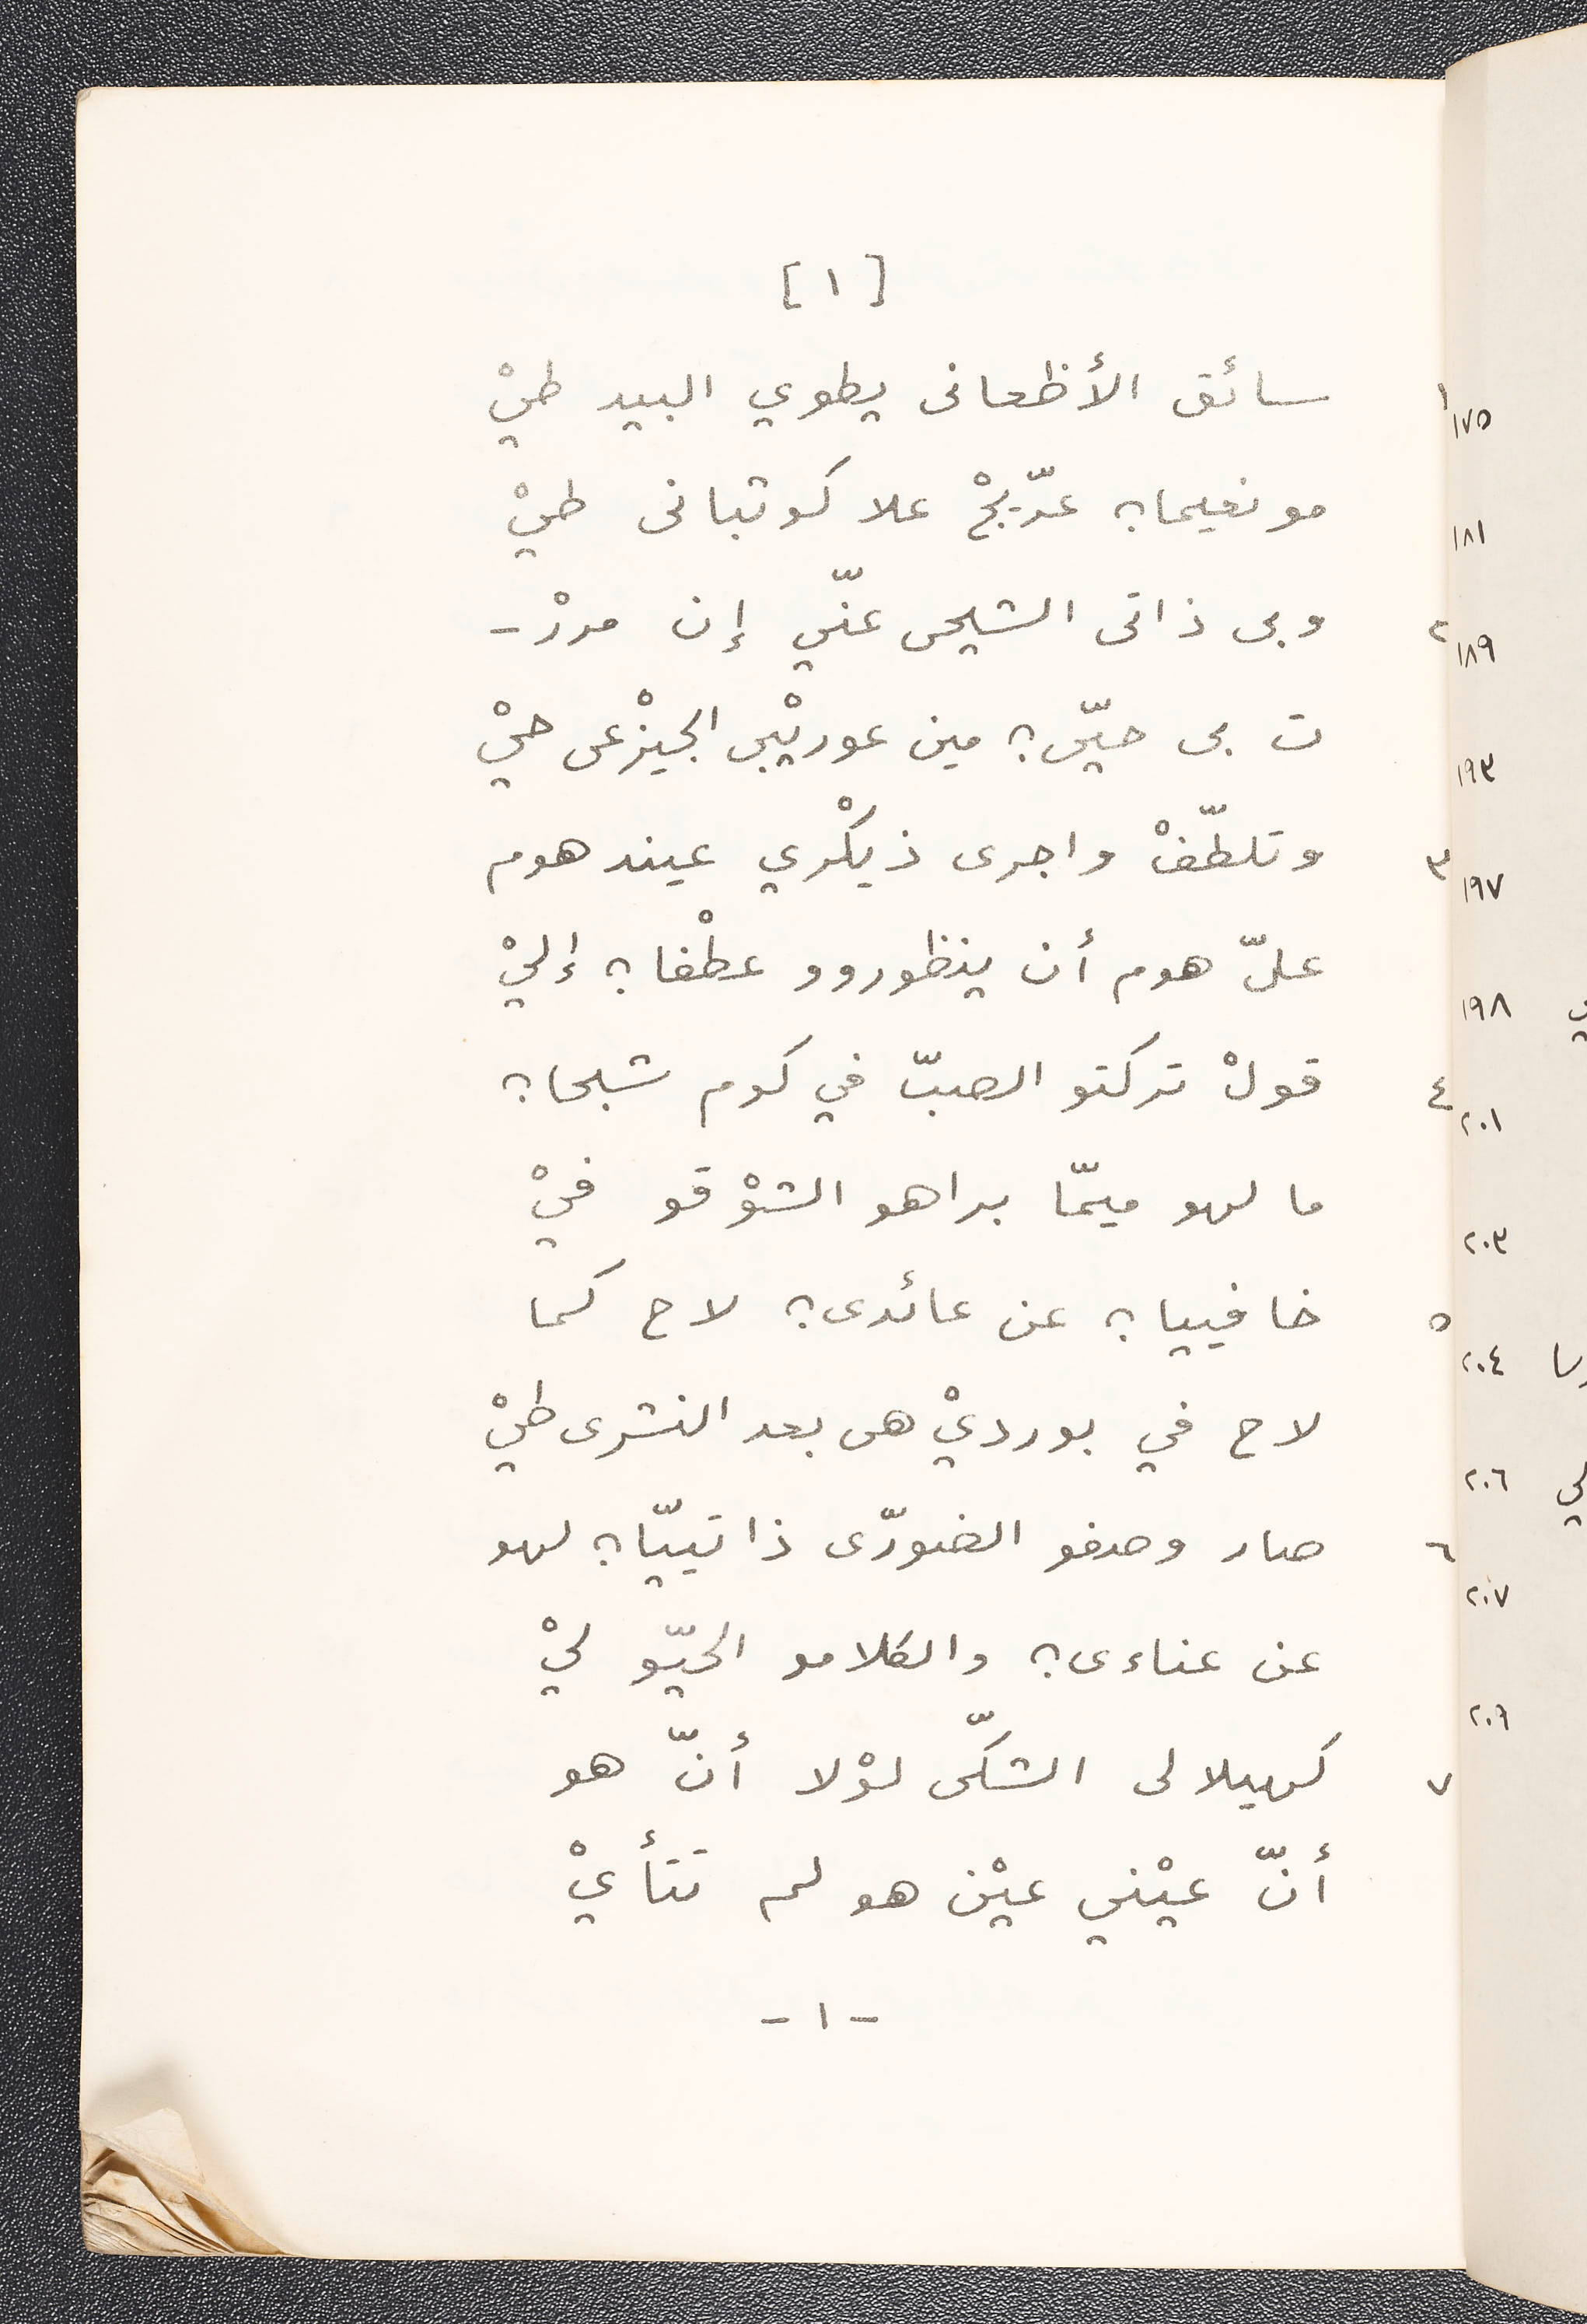 [١]
١ سائق الأظعانى يطوي البيد طيْ
مونعيما؟ عرّيجْ علا كوتبانى طيْ
٢ وبى ذاتى الشيحى عنّي إن مررْ-
ت بى حيّى؟ مين عوريْبى الجيزْعى حيْ
٣ وتلطّفْ واجرى ذيكْري عيند هوم
علّ هوم أن ينظوروو عطْفا؟ إليْ
٤ قولْ تركتو الصبّ في كوم شبحا؟
ما لهو ميمّا براهو الشوْقو فيْ
٥ خافييا؟ عن عائدى؟ لاح كما
لاح في بورديْ هى بعد النشرى طيْ
٦ صار وصفو الضورّى ذاتييّا؟ لهو
عن عناءى؟ والكلامو الحيّو ليْ
٧ كهيلالى الشكّى لوْلا أنّ هو
أنّ عيْني عيْن هو لم تتأيْ
-١-
١٧٥
١٨١
١٨٩
١٩٣
١٩٧
١٩٨
٢٠١
٢٠٣
٢٠٤
٢٠٦
٢٠٧
٢٠٩